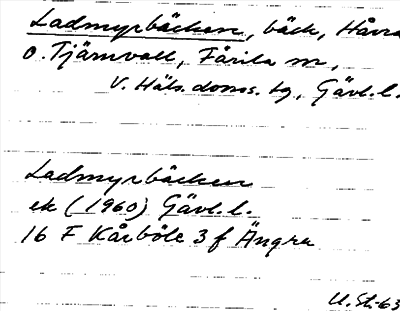 Ladmyrbäcken, bäck, Håvra
o. Tjärnvall, Färila sn,
V. Häls. doms. tg, Gävl. l.
Ladmyrbäcken
ek (1960) Gävl. l.
16 F Kårböle 3 f Ängra
U. St. 63